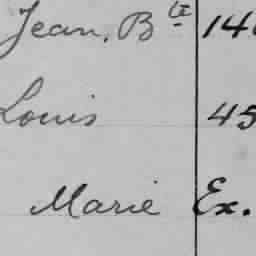 Jean, Bte 14
Louis 45
Marie Ex.